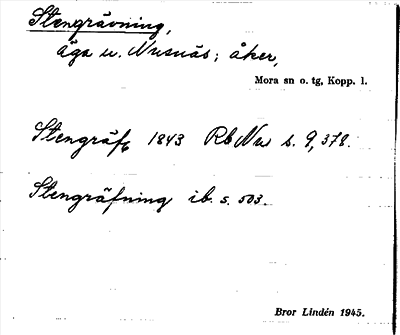 Stengrävning,
äga u. Nusnäs; åker,
Mora sn o. tg, Kopp. l.
Stengräf 1843 Rb Nus s. 9, 378.
Stengräfning ib. s. 503.
Bror Lindén 1945.